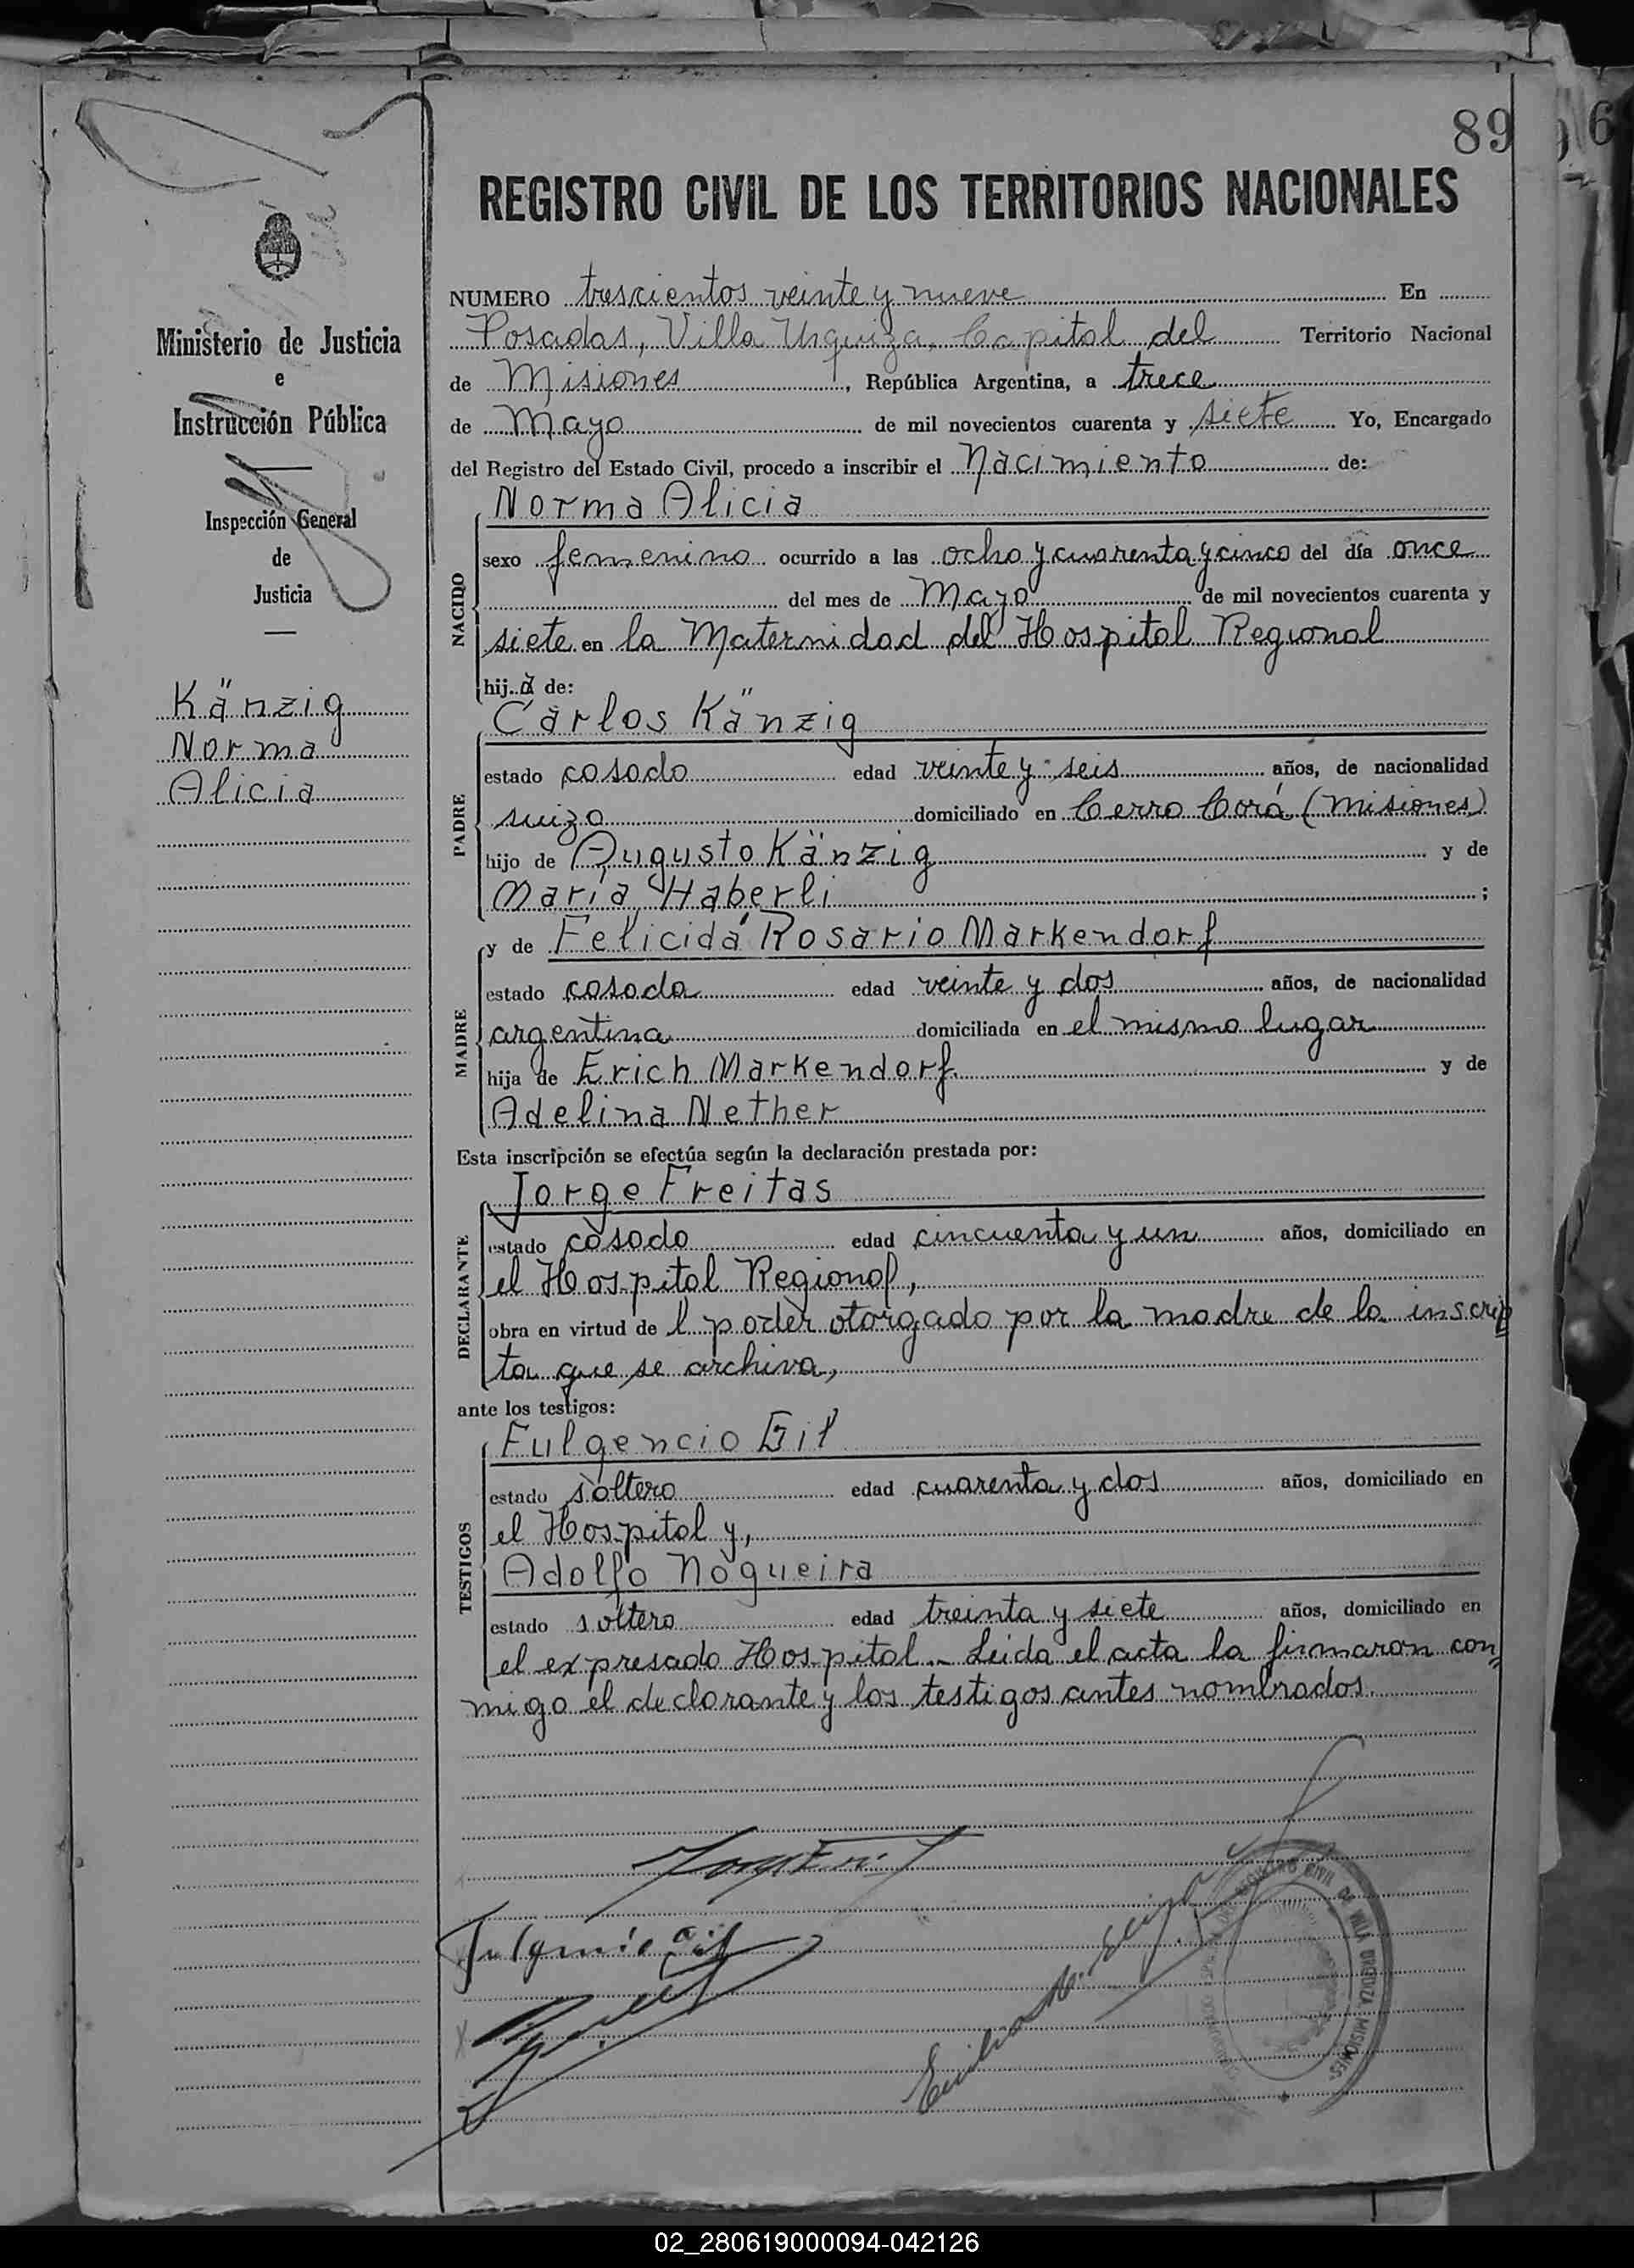 89
6
REGISTRO CIVIL DE LOS TERRITORIOS NACIONALES
Ministerio de Justicia
e
Instrucción Pública
Inspección General
de
Justicia
Känzig
Norma
Alicia
NUMERO trescientos veinte y nueve En
Posadas, Villa Urquiza, Capital del Territorio Nacional
de Misiones, República Argentina, a trece
de Mayo de mil novecientos cuarenta y siete Yo, Encargado
del Registro del Estado Civil, procedo a inscribir el Nacimiento de:
NACIDO
Norma Alicia
sexo femenino ocurrido a las ocho y cuarenta y cinco del día once
del mes de Mayo de mil novecientos cuarenta y
siete en la Maternidad del Hospital Regional
hij.a de:
PADRE
Carlos Känzig
estado casado edad veinte y seis años, de nacionalidad
suizo domiciliado en Cerro Corá (Misiones)
hijo de Augusto Känzig y de
María Haberli ;
MADRE
y de Felicida Rosario Markendorf
estado casada edad veinte y dos años, de nacionalidad
argentina domiciliada en el mismo lugar
hija de Erich Markendorf. y de
Adelina Nether
Esta inscripción se efectúa según la declaración prestada por:
DECLARANTE
Jorge Freitas
estado casado edad cincuenta y un años, domiciliado en
el Hospital Regional,
obra en virtud de l poder otorgado por la madre de la inscrip
ta que se archiva,
ante los testigos:
TESTIGOS
Fulgencio Gil
estado soltero edad cuarenta y dos años, domiciliado en
el Hospital y,
Adolfo Nogueira
estado soltero edad treinta y siete años, domiciliado en
el expresado Hospital.- Leida el acta la firmaron con=
migo el declarante y los testigos antes nombrados.
Fulgencio Gil
REGISTRO CIVIL DE VILLA URQUIZA MISIONES
02_280619000094-042126